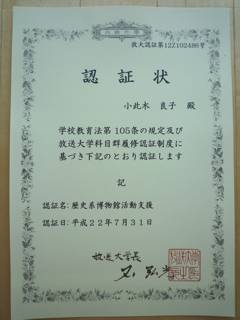 放大認証第12Z102486号
認証状
小此木 良子 殿
学校教育法第105条の規定及び
放送大学科目群履修認証制度に
基づき下記のとおり認証します
記
認証名:歴史系博物館活動支援
認証日:平成22年7月31日
放送大学長